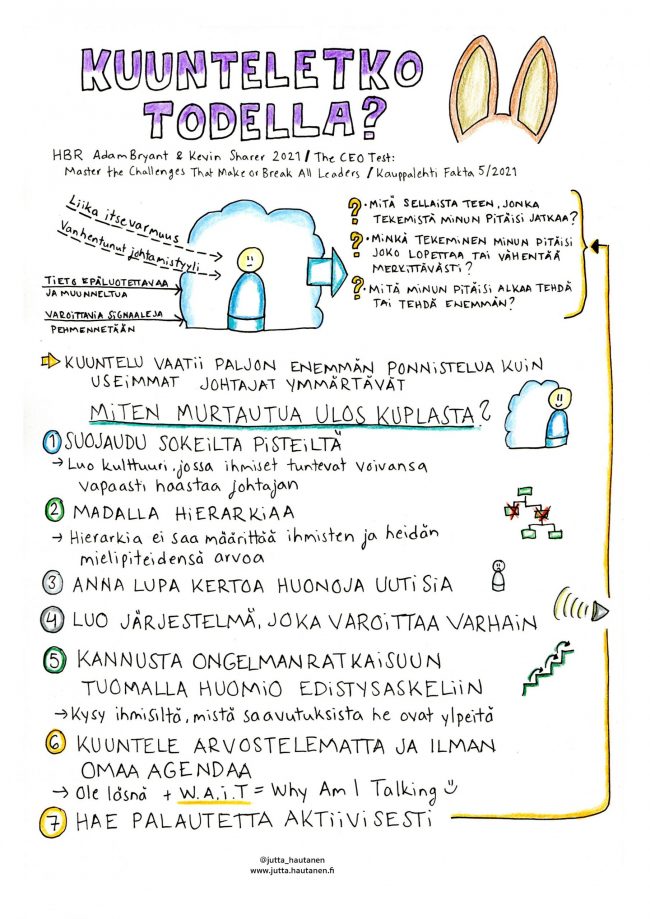 KUUNTELETKO
TODELLA?
HBR Adam Bryant & Kevin Sharer 2021 / The CEO Test:
Master the Challenges That Make or Break All Leaders / Kauppalehti Fakta 5/2021
Liika itsevarmuus
Vanhentunut johtamistyyli
TIETO EPÄLUOTETTAVAA
JA MUUNNELTUA
VAROITTAVIA SIGNAALEJA
PEHMENNETÄÄN
? • MITÄ SELLAISTA TEEN, JONKA
TEKEMISTÄ MINUN PITÄISI JATKAA?
? • MINKÄ TEKEMINEN MINUN PITÄISI
JOKO LOPETTAA TAI VÄHENTÄÄ
MERKITTÄVÄSTI?
? • MITÄ MINUN PITÄISI ALKAA TEHDÄ
TAI TEHDÄ ENEMMÄN?
KUUNTELU VAATII PALJON ENEMMÄN PONNISTELUA KUIN
USEIMMAT JOHTAJAT YMMÄRTÄVÄT
MITEN MURTAUTUA ULOS KUPLASTA?
1 SUOJAUDU SOKEILTA PISTEILTÄ
→ Luo kulttuuri, jossa ihmiset tuntevat voivansa
vapaasti haastaa johtajan
2 MADALLA HIERARKIAA
→ Hierarkia ei saa määrittää ihmisten ja heidän
mielipiteidensä arvoa
3 ANNA LUPA KERTOA HUONOJA UUTISIA
4 LUO JÄRJESTELMÄ, JOKA VAROITTAA VARHAIN
5 KANNUSTA ONGELMANRATKAISUUN
TUOMALLA HUOMIO EDISTYSASKELIIN
→ Kysy ihmisiltä, mistä saavutuksista he ovat ylpeitä
6 KUUNTELE ARVOSTELEMATTA JA ILMAN
OMAA AGENDAA
→ Ole läsnä + W.A.I.T = Why Am I Talking
7 HAE PALAUTETTA AKTIIVISESTI
@jutta_hautanen
www.jutta.hautanen.fi